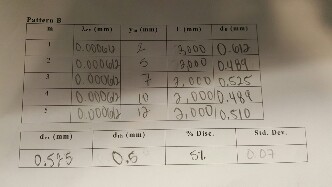 Pattern B
m λ (mm) y (mm) L (mm) d (mm)
1 0.000612 2 2,000 0.612
2 0.000612 5 2,000 0.489
3 0.000612 7 2,000 0.525
4 0.000612 10 2,000 0.489
5 0.000612 12 2,000 0.510
d (mm) d (mm) % Disc. Std. Dev.
0.525 0.5 5% 0.07